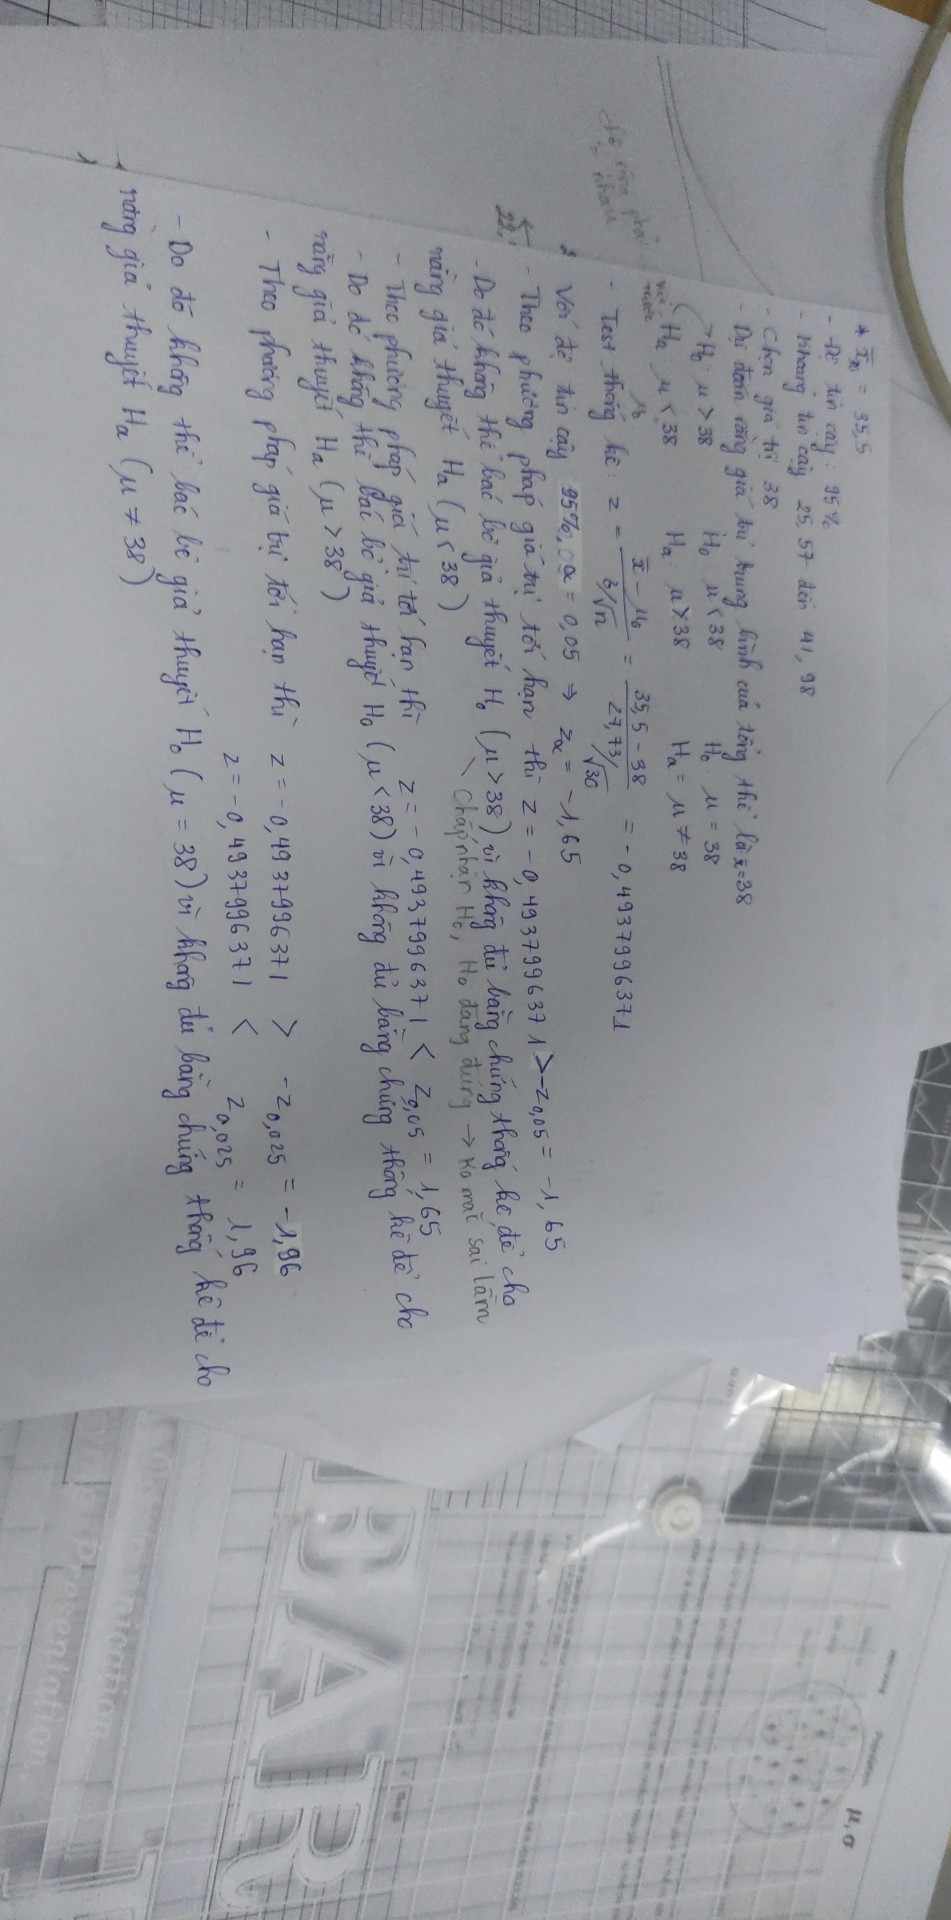 * x̄₃₀ = 35,5
- Độ tin cậy: 95%
- Khoảng tin cậy 25,57 đến 41,98
- Chọn giá trị 38
- Dự đoán rằng giá trị trung bình của tổng thể là x̄=38
H₀ μ > 38 H₀ μ < 38 H₀ μ = 38
Hₐ μ < 38 Hₐ μ > 38 Hₐ = μ ≠ 38
- Test thống kê: z = (x̄ - μ₀)/(б/√n) = (35,5 - 38)/(27,73/√30) = -0,4937996371
Với độ tin cậy 95%, α = 0,05 → zα = -1,65
- Theo phương pháp giá trị tới hạn thì z = -0,4937996371 > -z0,05 = -1,65
- Do đó không thể bác bỏ giả thuyết H₀ (μ > 38) vì không đủ bằng chứng thống kê để cho
rằng giả thuyết Hₐ (μ < 38)
Chấp nhận H₀, H₀ đang đúng → Ko mắc sai lầm
- Theo phương pháp giá trị tới hạn thì z = -0,4937996371 < z0,05 = 1,65
- Do đó không thể bác bỏ giả thuyết H₀ (μ < 38) vì không đủ bằng chứng thống kê để cho
rằng giả thuyết Hₐ (μ > 38)
- Theo phương pháp giá trị tới hạn thì z = -0,4937996371 > -z0,025 = -1,96
z = -0,4937996371 < z0,025 = 1,96
- Do đó không thể bác bỏ giả thuyết H₀ (μ = 38) vì không đủ bằng chứng thống kê để cho
rằng giả thuyết Hₐ (μ ≠ 38)
μ, σ
EAR
Presentation